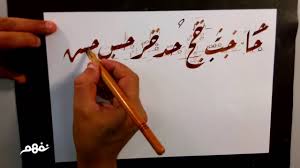 حا حب حج حد حر حس
نفهم